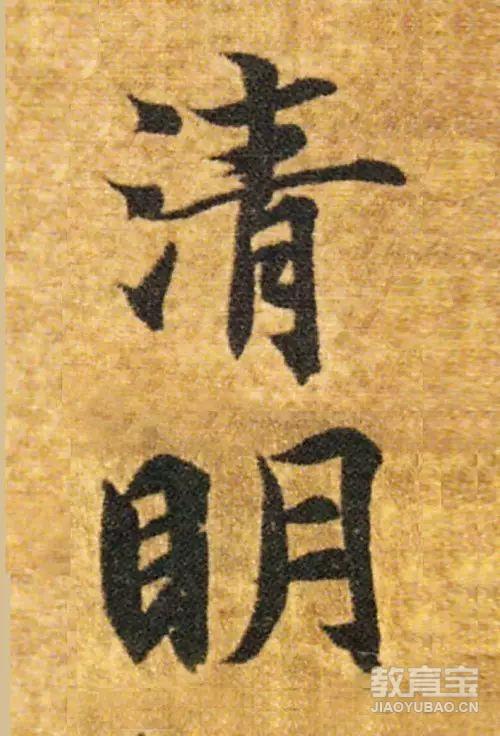 清
明
教育宝
JIAOYUBAO.CN